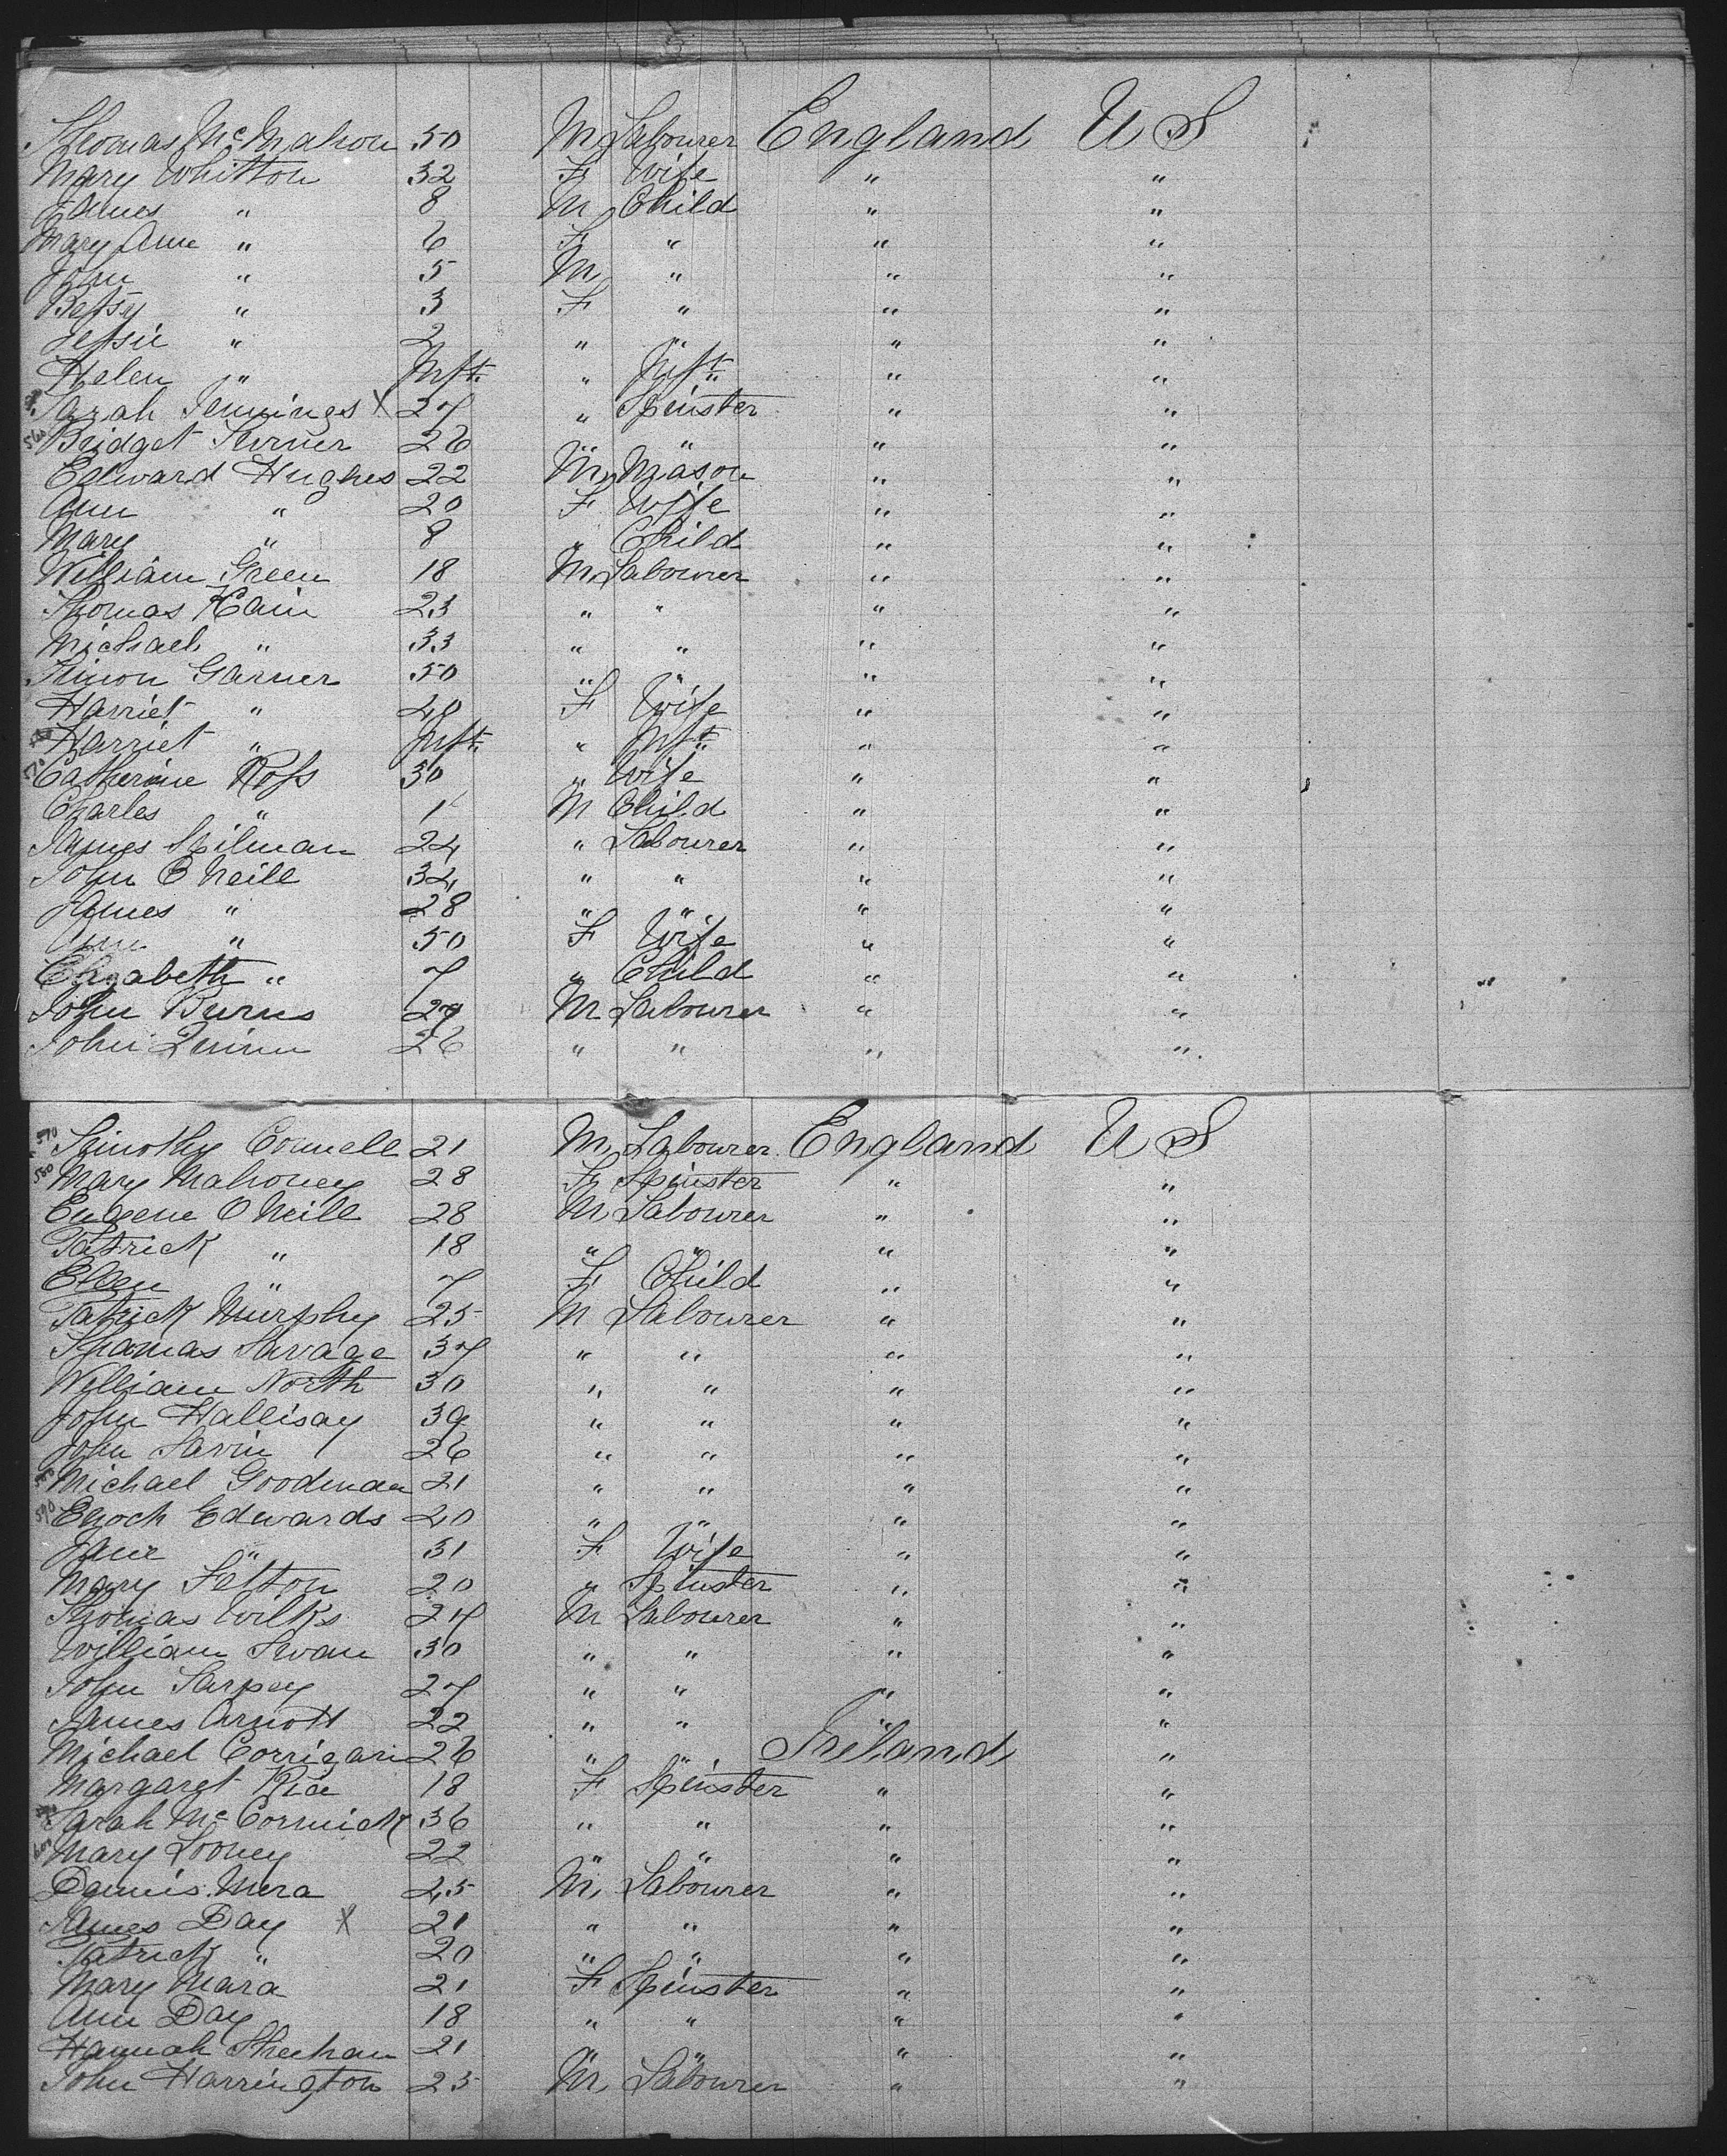 Thomas McMahon 50 M Labourer England U S
Mary Whitton 32 F Wife " "
James " 8 M Child " "
Mary Ann " 6 F " " "
John " 5 M " " "
Betsy " 3 F " " "
Jessie " 2 " " " "
Helen " Inft. " Inft. " "
Sarah Jennings X 27 " Spinster " "
560 Bridget Turner 26 " " " "
Edward Hughes 22 M Mason " "
Ann " 20 F Wife " "
Mary " 8 " Child " "
William Green 18 M Labourer " "
Thomas Kain 23 " " " "
Michael " 33 " " " "
Simon Garner 50 " " " "
Harriet " 40 F Wife " "
Harriet " Inft. " Inft. " "
570 Catherine Ross 30 " Wife " "
Charles " 1 M Child " "
James Spilman 24 " Labourer " "
John O Neill 34 " " " "
James " 28 " " " "
Ann " 50 F Wife " "
Elizabeth " 7 " Child " "
John Burns 27 M Labourer " "
John Quinn 26 " " " "
Timothy Connell 21 M Labourer England U S
580 Mary Mahoney 28 F Spinster " "
Eugene O Neill 28 M Labourer " "
Patrick " 18 " " " "
Ellen " 7 F Child " "
Patrick Murphy 25 M Labourer " "
Thomas Savage 37 " " " "
William North 30 " " " "
John Hallisay 39 " " " "
John Savin 26 " " " "
Michael Goodman 21 " " " "
590 Enoch Edwards 20 " " " "
Jane " 31 F Wife " "
Mary Felton 20 " Spinster " "
Thomas Wilks 27 M Labourer " "
William Swan 30 " " " "
John Tarpey 27 " " " "
James Arnott 22 " " " "
Michael Corrigan 26 " " Ireland "
Margaret Rice 18 F Spinster " "
Sarah McCormick 36 " " " "
Mary Looney 22 " " " "
Dennis Mera 25 M Labourer " "
James Day X 21 " " " "
Patrick " 20 " " " "
Mary Mara 21 F Spinster " "
Ann Day 18 " " " "
Hannah Sheehan 21 " " " "
John Harrington 25 M Labourer " "